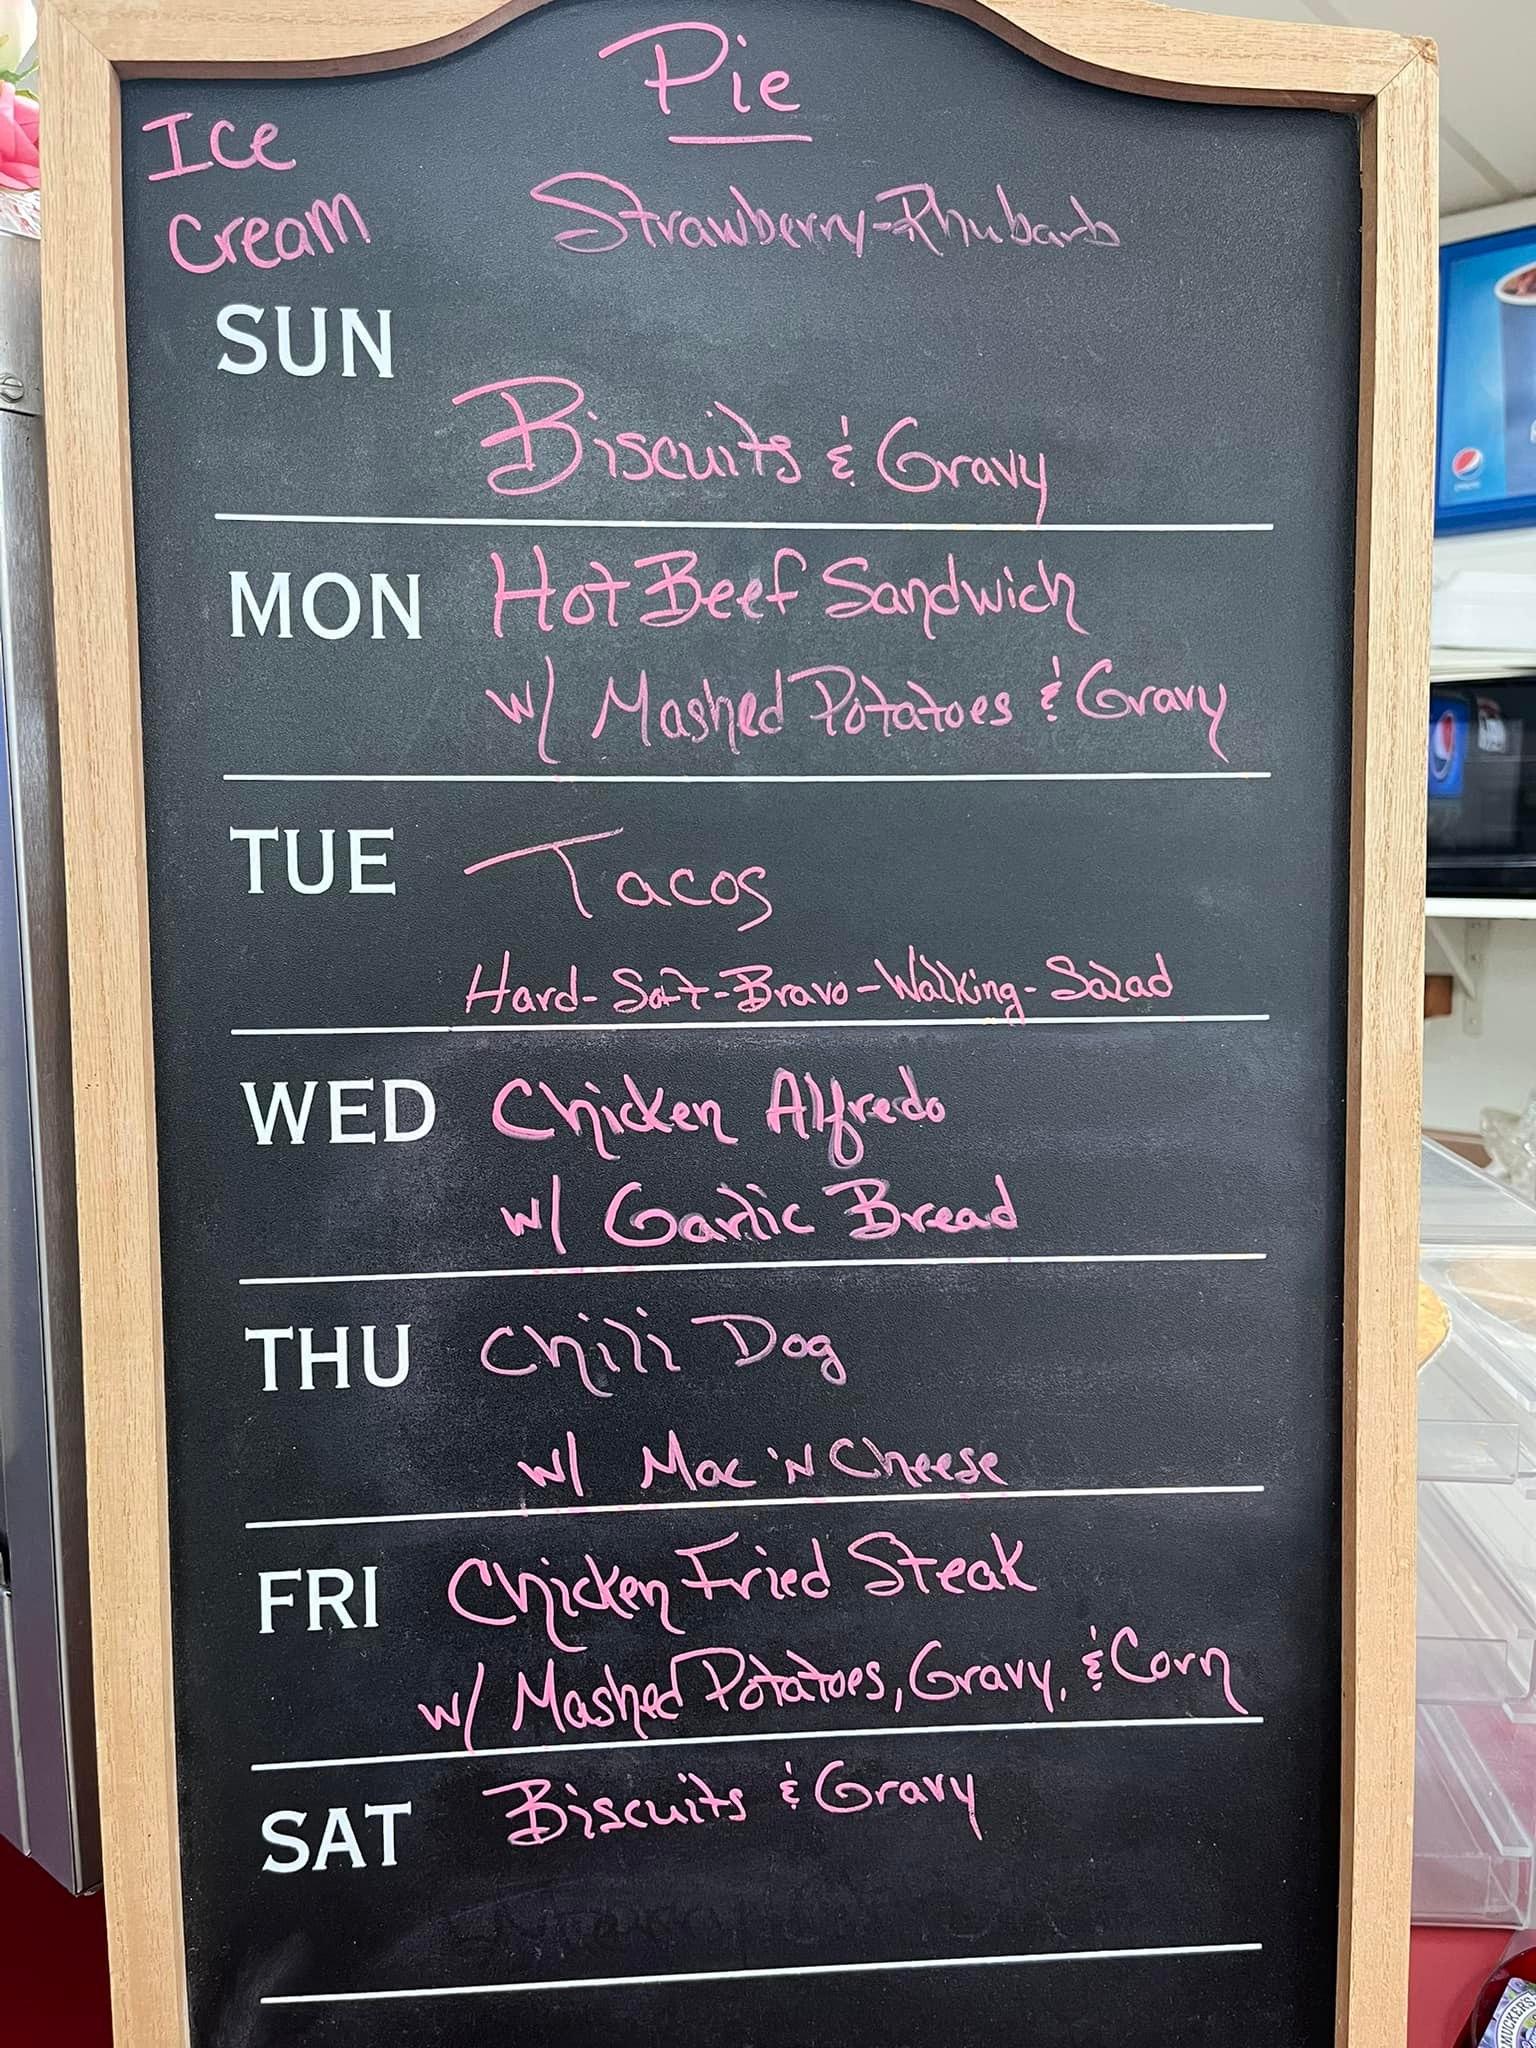 Pie
Ice
Cream
Strawberry-Rhubarb
SUN
Biscuits & Gravy
MON
Hot Beef Sandwich
w/ Mashed Potatoes & Gravy
TUE
Tacos
Hard-Soft-Bravo-Walking-Salad
WED
Chicken Alfredo
w/ Garlic Bread
THU
Chili Dog
w/ Mac 'N Cheese
FRI
Chicken Fried Steak
w/ Mashed Potatoes, Gravy, & Corn
SAT
Biscuits & Gravy